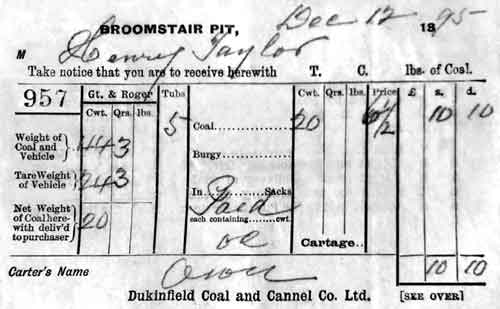 BROOMSTAIR PIT, Dec 12 1895
M Henry Taylor
Take notice that you are to receive herewith T. C. lbs. of Coal.
957 Gt. & Roger Tubs Cwt. Qrs. lbs. Price £ s. d.
Cwt. Qrs. lbs. 5 Coal 20 6½ 10 10
Weight of Coal and Vehicle 44 3
Burgy
Tare Weight of Vehicle 24 3
In Sacks
Paid
Net Weight of Coal herewith deliv'd to purchaser 20
each containing cwt.
Cartage
10 10
Carter's Name Own
Dukinfield Coal and Cannel Co. Ltd. [SEE OVER]